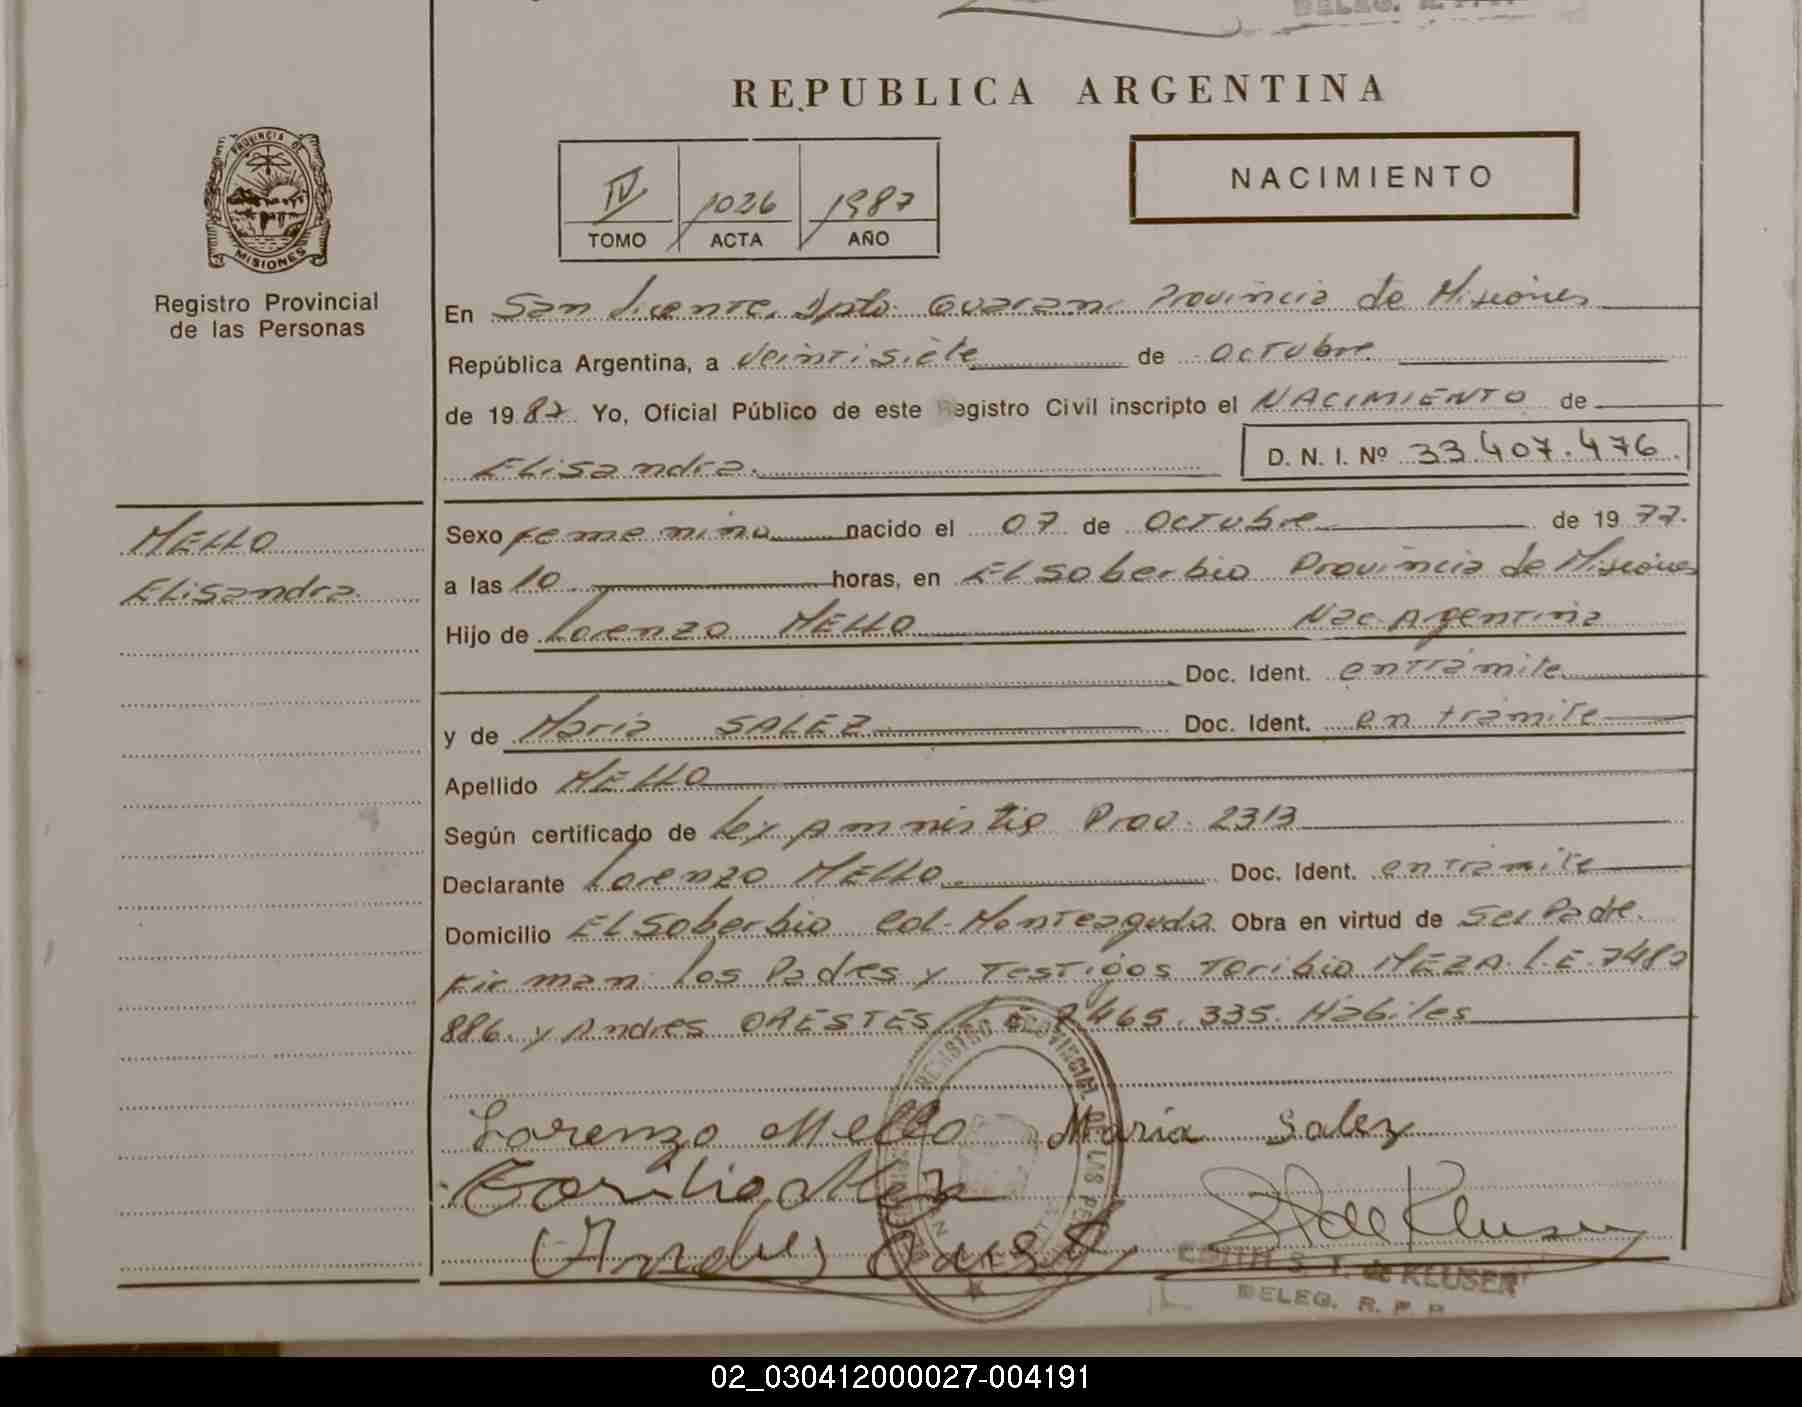 REPUBLICA ARGENTINA
PROVINCIA DE
MISIONES
Registro Provincial
de las Personas
IV 1026 1987
TOMO ACTA AÑO
NACIMIENTO
En San Vicente, Dpto. Guarani Provincia de Misiones
República Argentina, a veintisiete de octubre
de 1987 Yo, Oficial Público de este Registro Civil inscripto el NACIMIENTO de
Elisandra. D. N. I. Nº 33.407.476.
MELLO
Elisandra.
Sexo femenino nacido el 07 de Octubre de 1977.
a las 10 horas, en El Soberbio Provincia de Misiones
Hijo de Lorenzo MELLO Nac. Argentina
Doc. Ident. en trámite
y de Maria SALEZ Doc. Ident. en trámite
Apellido MELLO
Según certificado de Ley Amnistia Prov. 2313
Declarante Lorenzo MELLO Doc. Ident. en trámite
Domicilio El Soberbio Col. Monteagudo. Obra en virtud de Ser Padre.
Firman los Padres y Testigos Toribio MEZA L.E. 7482
886. y Andres ORESTES L E 7.465.335. Hábiles
Lorenzo Mello Maria Salez
Toribio Meza
Andres
de Kluser
REGISTRO PROVINCIAL DE LAS PERSONAS
EDITH S. T. de KLUSER
DELEG. R. P. P.
02_030412000027-004191